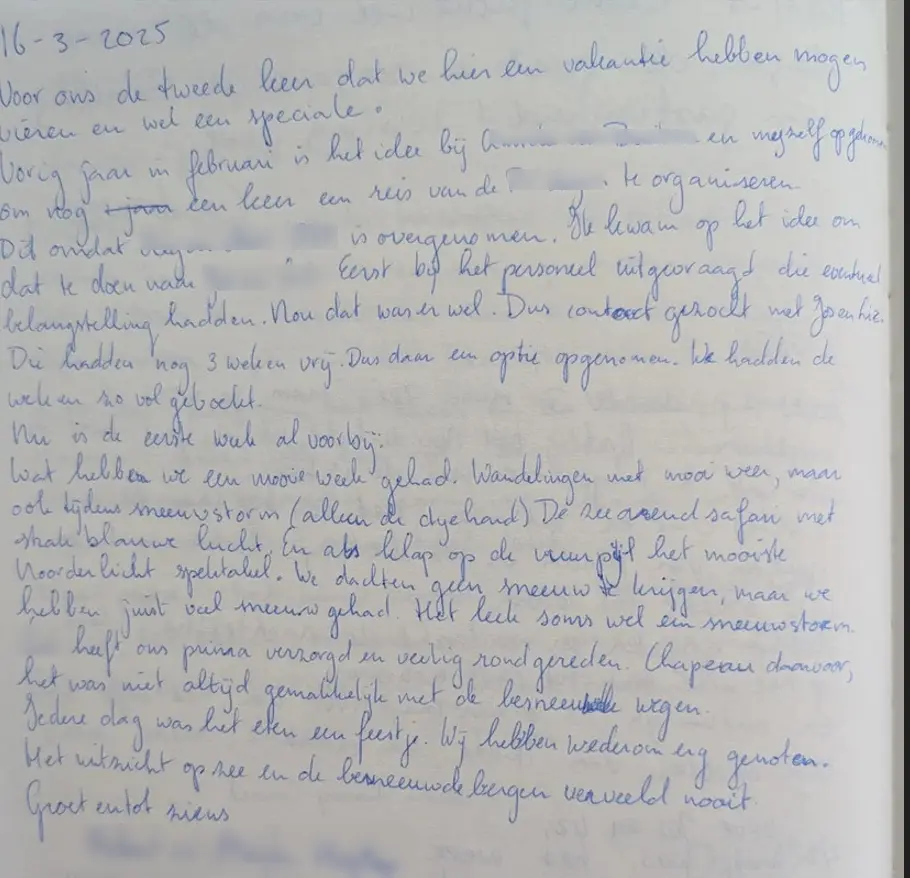 16-3-2025
Voor ons de tweede keer dat we hier een vakantie hebben mogen
vieren en wel een speciale.
Vorig jaar in februari is het idee bij en mezelf opgekomen
om nog een keer een reis van de te organiseren.
Dit omdat is overgenomen. Ik kwam op het idee om
dat te doen Eerst bij het personeel uitgevraagd die eventueel
belangstelling hadden. Nou dat was er wel. Dus contact gezocht met
Die hadden nog 3 weken vrij. Dus daar een optie opgenomen. We hadden de
weken zo vol geboekt.
Nu is de eerste week al voorbij.
Wat hebben we een mooie week gehad. Wandelingen met mooi weer, maar
ook tijdens sneeuwstorm (alleen de dyehard) De zeearend safari met
strak blauwe lucht. En als klap op de vuurpijl het mooiste
Noorderlicht spektakel. We dachten geen sneeuw te krijgen, maar we
hebben juist veel sneeuw gehad. Het leek soms wel een sneeuwstorm.
heeft ons prima verzorgd en veilig rondgereden. Chapeau daarvoor,
het was niet altijd gemakkelijk met de besneeuwde wegen.
Iedere dag was het eten een feestje. Wij hebben wederom erg genoten.
Het uitzicht op zee en de besneeuwde bergen verveeld nooit.
Groet en tot ziens